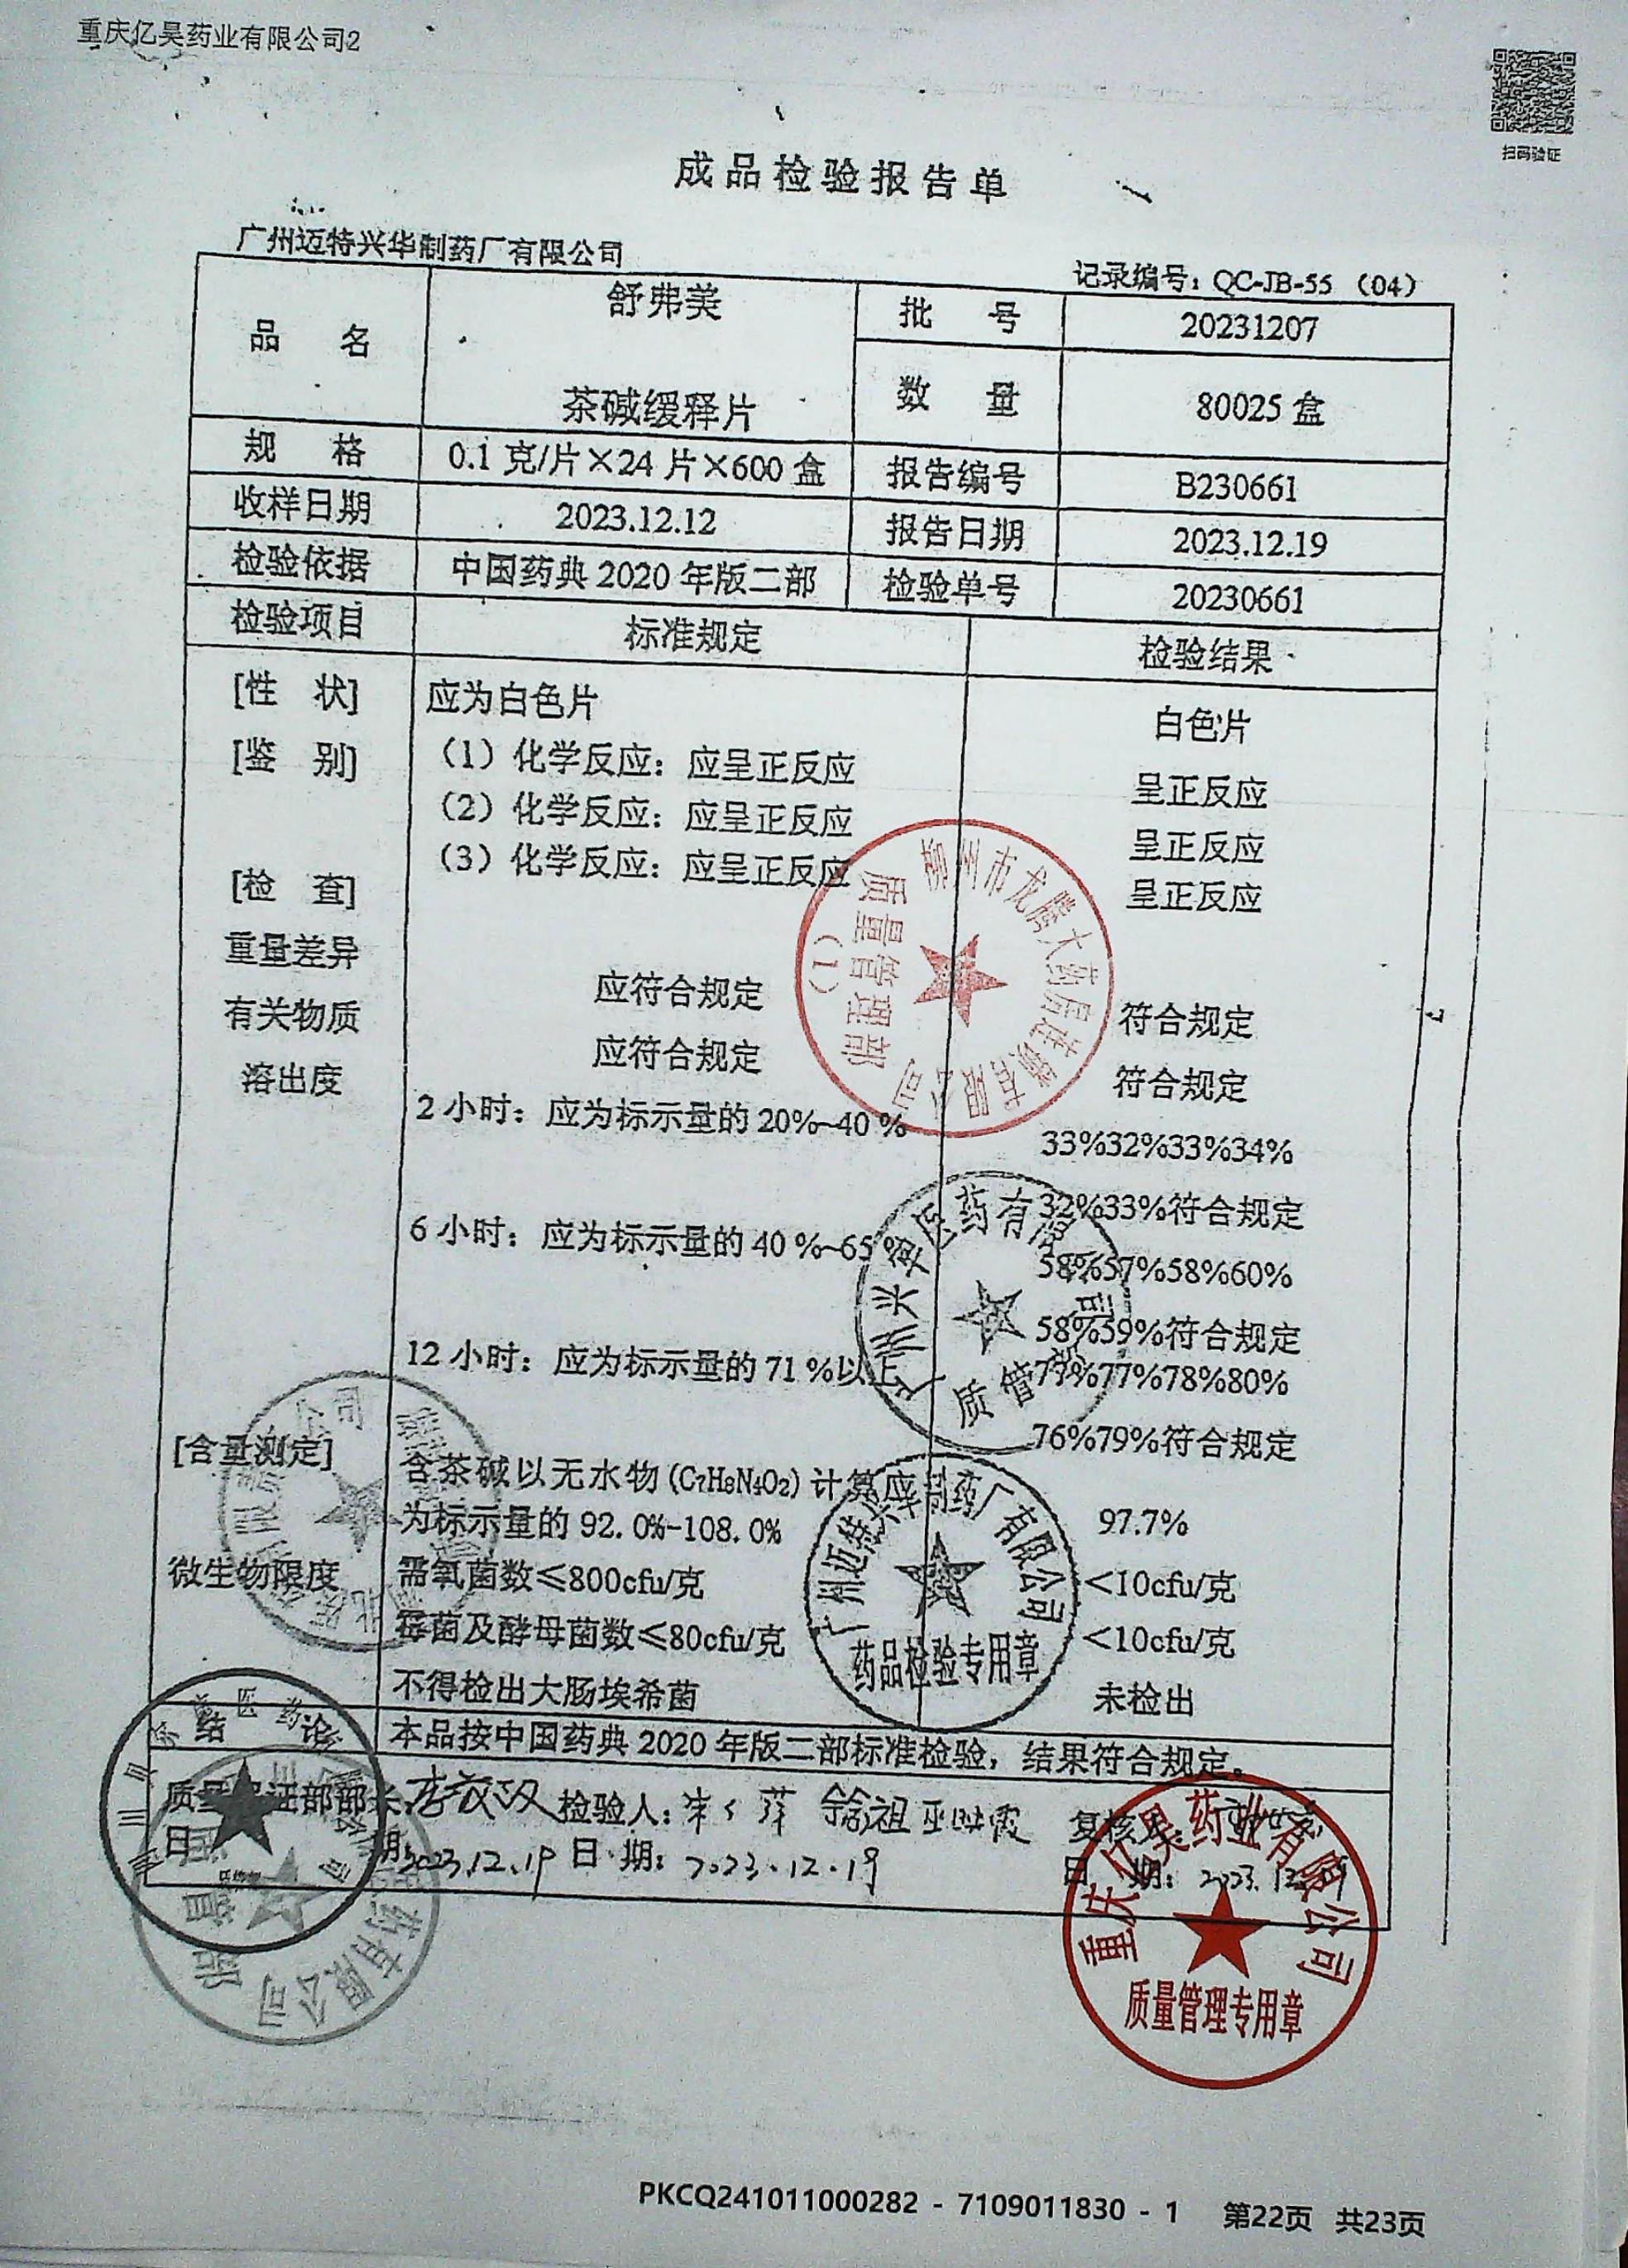 重庆亿昊药业有限公司2
扫码验证
成品检验报告单
广州迈特兴华制药厂有限公司
记录编号：QC-JB-55（04）
品 名 舒弗美 茶碱缓释片 批 号 20231207
数 量 80025 盒
规 格 0.1 克/片×24 片×600 盒 报告编号 B230661
收样日期 2023.12.12 报告日期 2023.12.19
检验依据 中国药典 2020 年版二部 检验单号 20230661
检验项目 标准规定 检验结果
[性 状] 应为白色片 白色片
[鉴 别] （1）化学反应：应呈正反应 呈正反应
（2）化学反应：应呈正反应 呈正反应
（3）化学反应：应呈正反应 呈正反应
[检 查]
重量差异 应符合规定 符合规定
有关物质 应符合规定 符合规定
溶出度 2 小时：应为标示量的 20%~40 % 33%32%33%34%
32%33%符合规定
6 小时：应为标示量的 40 %~65 % 58%57%58%60%
58%59%符合规定
12 小时：应为标示量的 71 %以上 77%77%78%80%
76%79%符合规定
[含量测定] 含茶碱以无水物(C7H8N4O2) 计算应
为标示量的 92.0%-108.0% 97.7%
微生物限度 需氧菌数≤800cfu/克 <10cfu/克
霉菌及酵母菌数≤80cfu/克 <10cfu/克
不得检出大肠埃希菌 未检出
结 论 本品按中国药典 2020 年版二部标准检验，结果符合规定。
质量保证部部长： 检验人： 复核人：
日 期：2023.12.19 日 期：2023.12.19 日 期：2023.12.19
柳州市龙腾大药房连锁有限公司
质量管理部
（1）
广州迈特兴华制药厂有限公司
药品检验专用章
重庆亿昊药业有限公司
质量管理专用章
PKCQ241011000282 - 7109011830 - 1 第22页 共23页